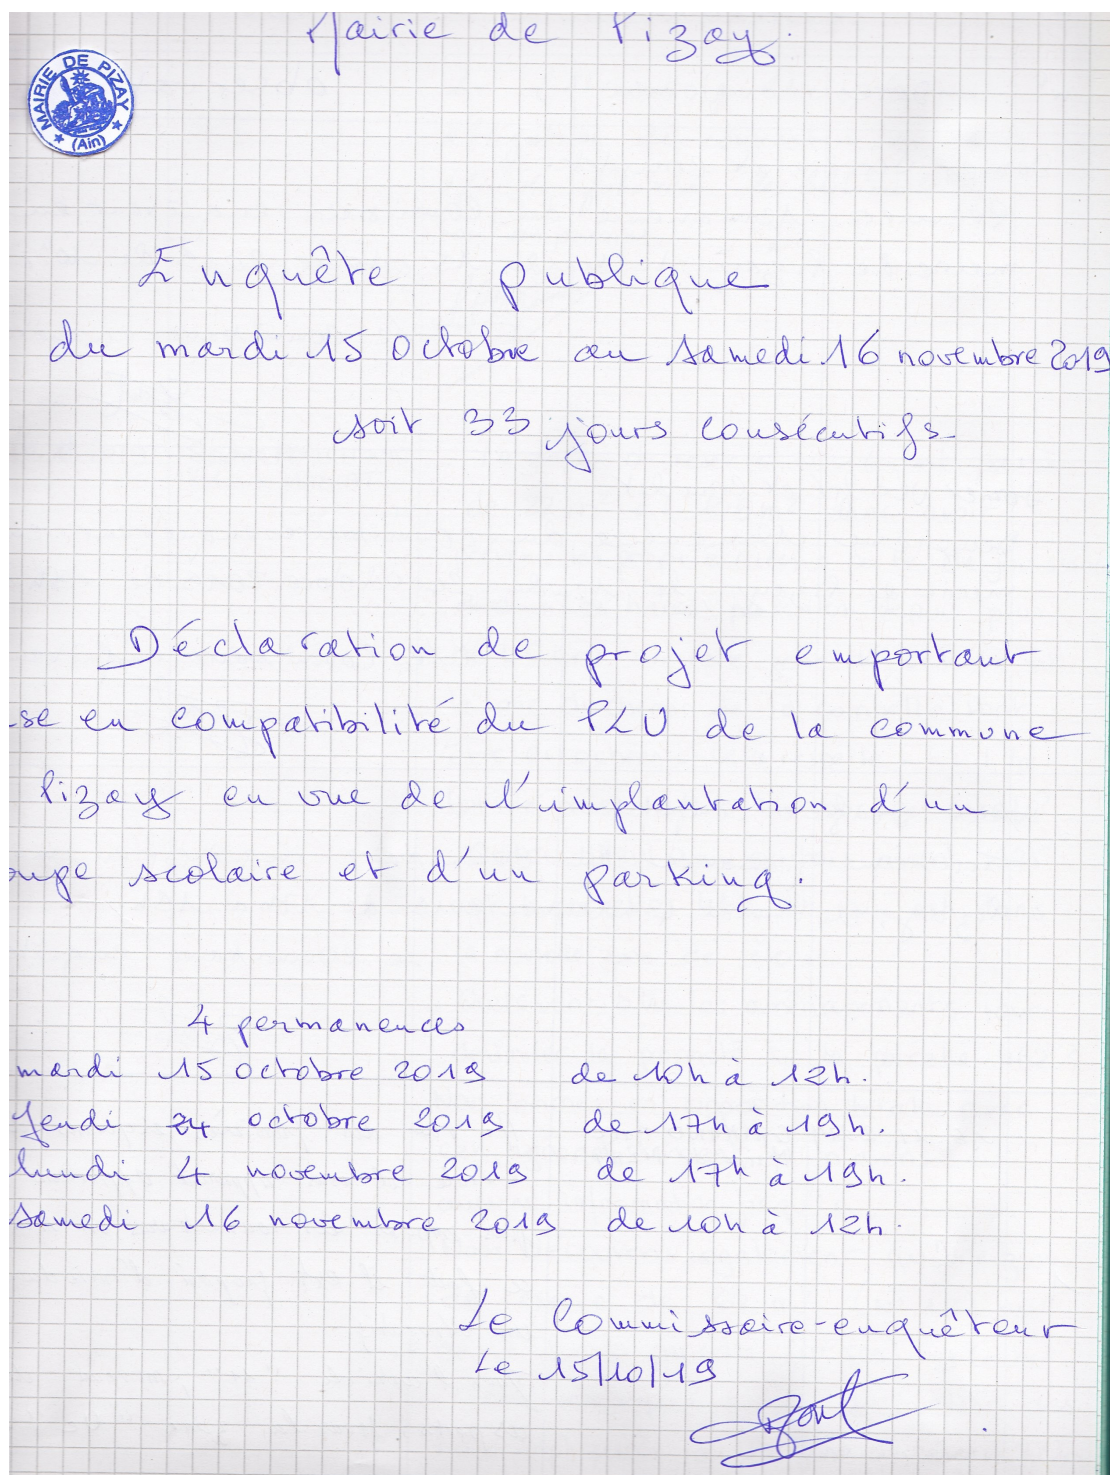 Mairie de Pizay.
MAIRIE DE PIZAY
(Ain)
Enquête publique
du mardi 15 octobre au samedi 16 novembre 2019
soit 33 jours consécutifs
Déclaration de projet emportant
se en compatibilité du PLU de la commune
Pizay en vue de l'implantation d'un
oupe scolaire et d'un parking.
4 permanences
mardi 15 octobre 2019 de 10h à 12h.
Jeudi 24 octobre 2019 de 17h à 19h.
lundi 4 novembre 2019 de 17h à 19h.
Samedi 16 novembre 2019 de 10h à 12h.
Le Commissaire-enquêteur
Le 15/10/19